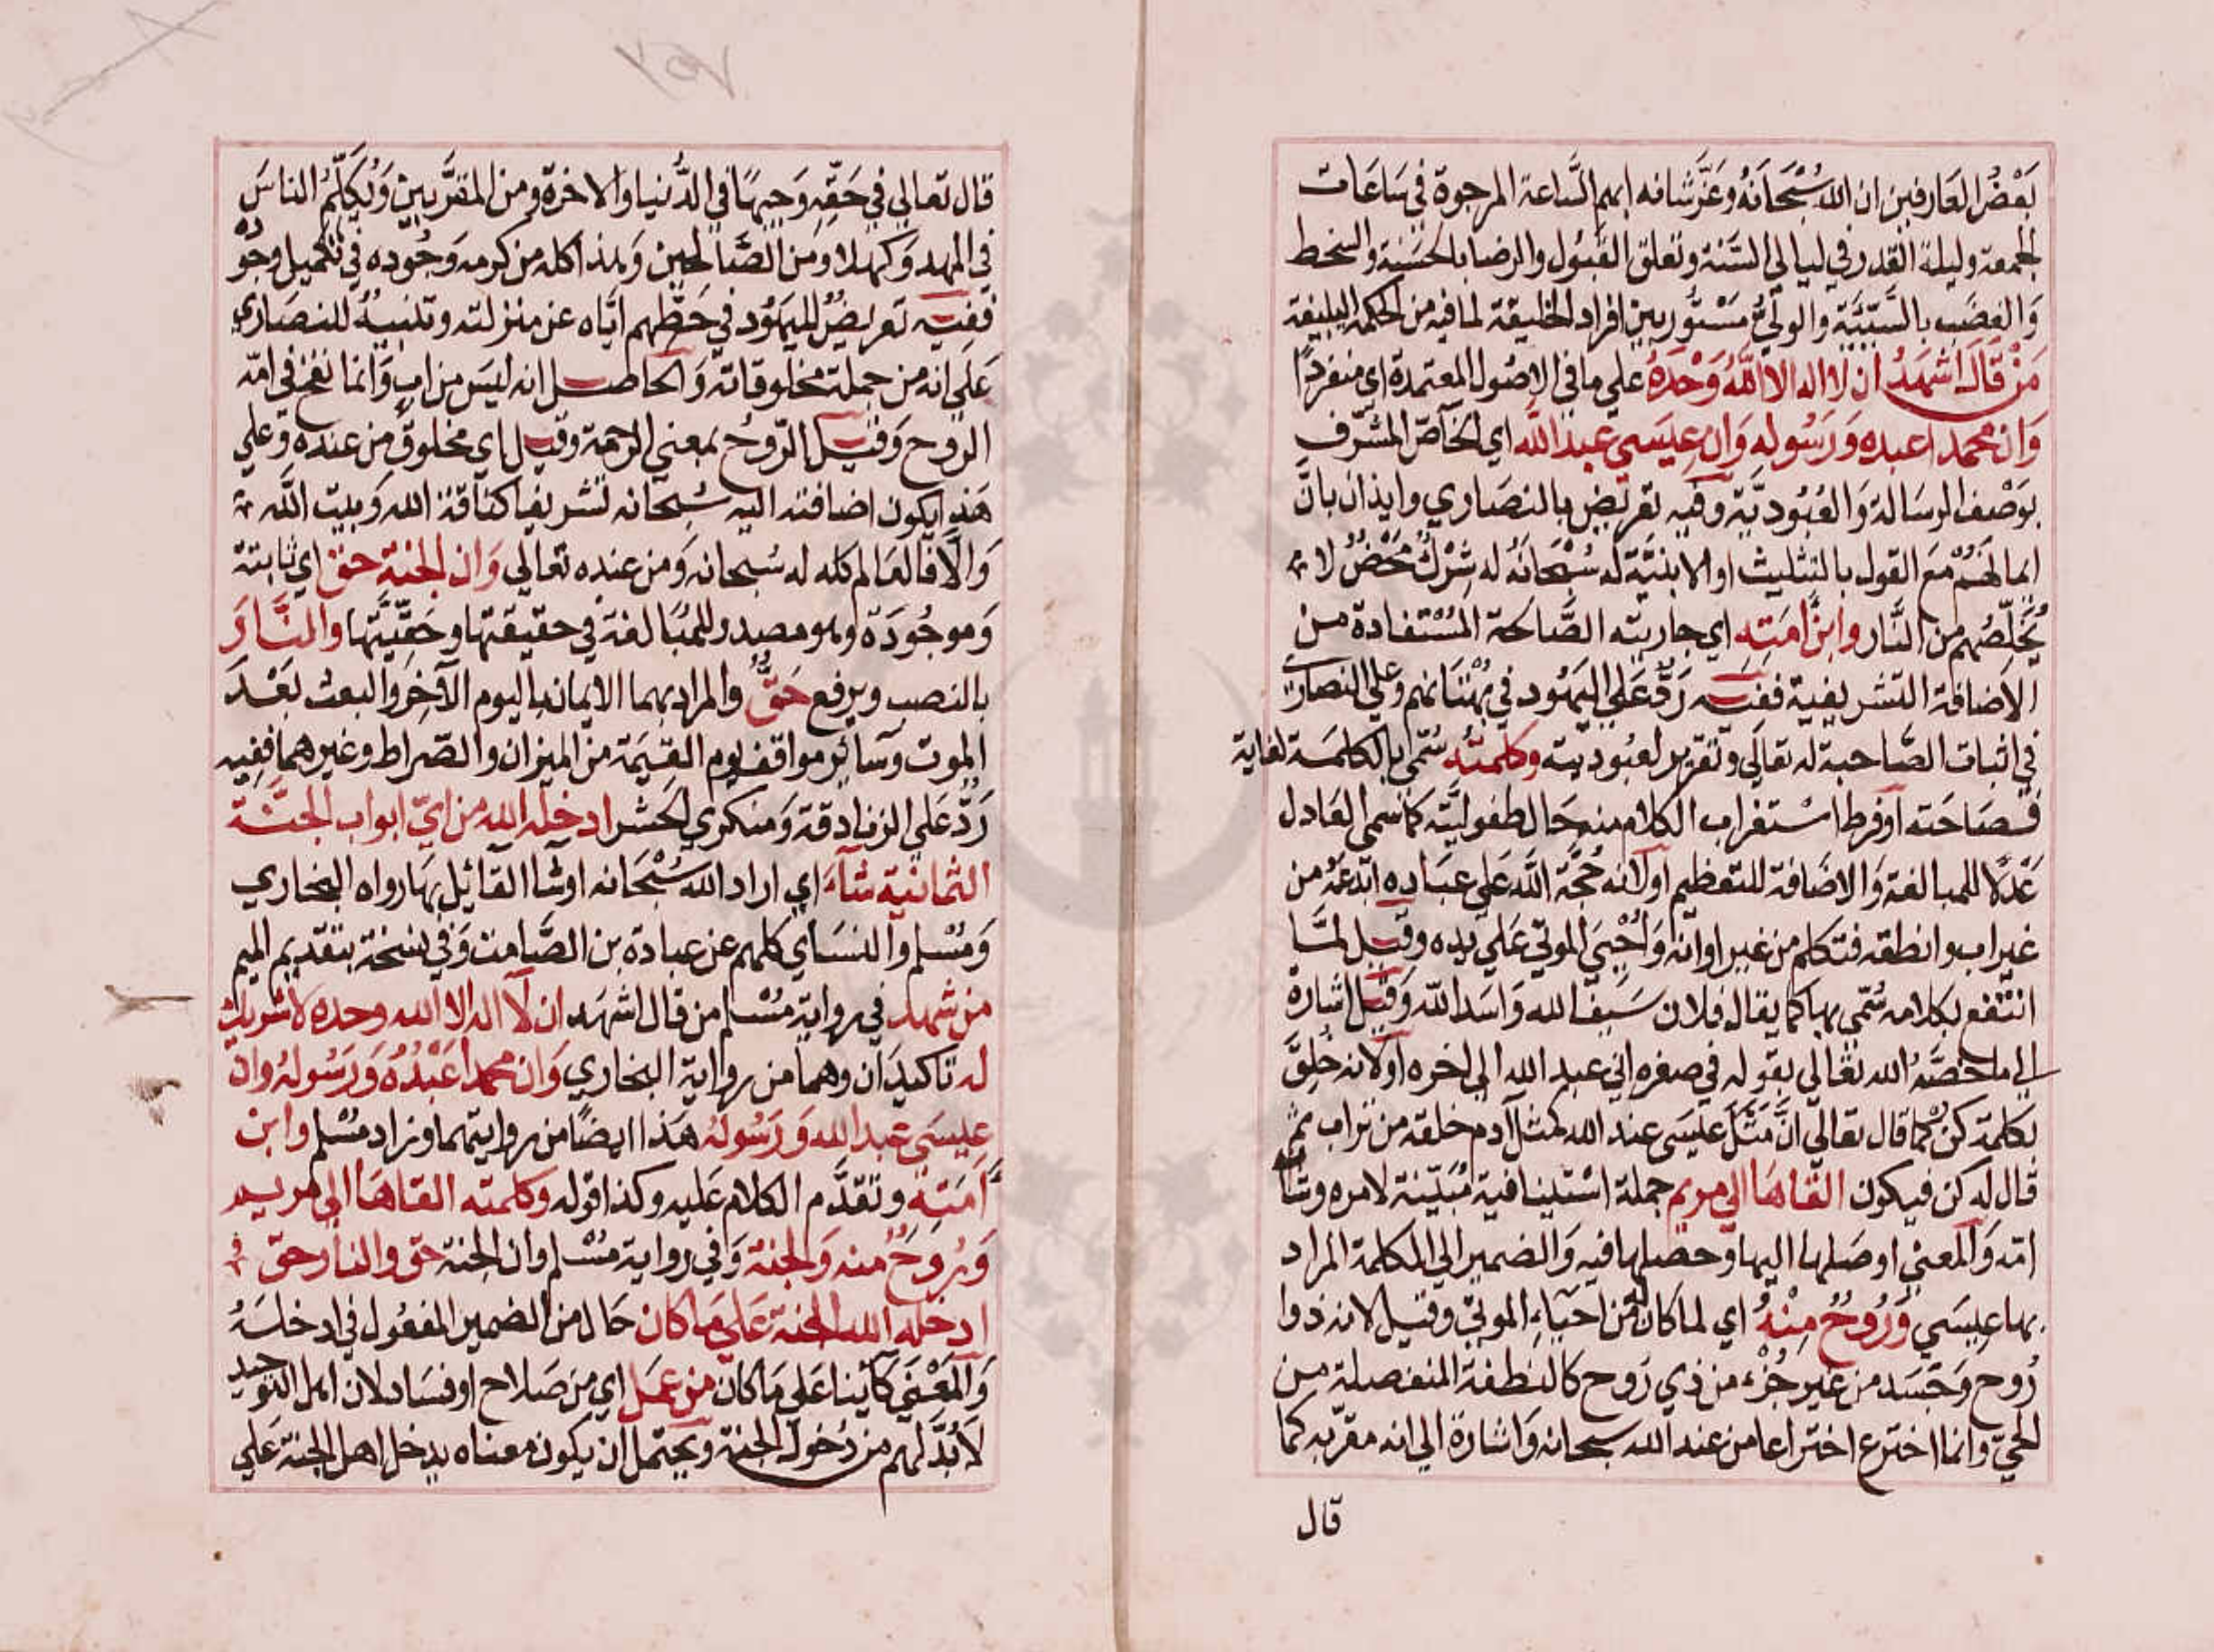 بَعْضُ العَارفين ان الله سُبْحَانَهُ وعَزَّ شانه ابهم السَّاعة المرجوة في سَاعَات
الجمعة وليلة القدر في ليالي السَّنة وتعلق القبُول والرضا بالحَسَنة والسخط
وَالغضَب بالسَّيِّئَة والوليُّ مسْتُور بين افراد الخليقة لما فيه من الحكمة البليغة
مَنْ قَالَ اشهَدُ ان لا اله الا اللّٰهُ وَحْدَهُ علي ما في الاصُول المعتمدة اي منفردًا
وَان محمدا عبده وَرَسُوله وَان عيسَى عبد الله اي الخاصّ المشرف
بوَصْف الرسَالة وَالعُبُوديَّة وفيه تعريض بالنصَاري وايذان بانَّ
ايمانهم مَعَ القول بالتثليث او الابنيَّة له سُبْحَانَهُ له شِرْكٌ مَحْضٌ لا
يُخَلِّصُهم من النَّار وابنُ امَتِه اي جاريته الصَّالحة المُسْتفادة من
الاضافة التشريفية ففيه رَدٌّ عَلي اليهُود في بُهْتَانهم وعلي النصَاري
في اثبات الصَّاحبة له تعَالي وتقرير لعبُوديته وكلمتُه سُمّي بالكلمَة لغاية
فصَاحَته او فرط اسْتغراب الكلام منه حَال طفوليّته كما سمي العَادل
عَدلًا للمبالغة وَالاضَافة للتعظيم او لانه حُجَّة اللّه عَلي عبَاده ابدَعَهُ من
غير اب وانطقه فتكلم من غير اوانه وَأَحْيَي الموتي عَلي يده وقيل لمَّا
انتفع بكلامه سُمّي بها كما يقال فلان سَيفُ الله وَاسَد اللّه وَقيل اشارة
الي ما خصَّهُ الله تعَالي بقوله في صغره اني عبد الله الي اخره او لانه خُلِقَ
بكلمة كن كما قال تعَالي انَّ مَثَلَ عيسَى عند الله كمثل آدم خلقه من تراب ثم
قال له كن فيكون القاهَا الي مريم جملة اسْتينافية مُبيّنة لامره وشان
امّه وَالمعني اوصَلها اليها وحصلها فيه وَالضمير الي الكلمة المراد
بها عيسَي وَرُوحٌ مِنْهُ اي لما كان له من احيَاء الموتي وقيل لانه ذو
رُوح وَجَسَد من غير جُزْء من ذي رَوح كالنطفة المنفصلة من
الحيّ وانما اخترع اختراعا من عند الله سبحانه وَاشارة الي انه مقربه كما
قال
قال تعالي في حَقّه وَجيهًا في الدُّنيا والاخرة ومن المقرَّبين وَيُكَلِّمُ الناسَ
في المهد وَكهلا وَمن الصَّالحين وَهذا كله من كرمه وَجُوده في تكميل وجُوده
ففيه تعريضٌ لليهُود في حَطِّهم ايّاه عن منزلته وتنبيهٌ للنصَاري
عَلي انه من جملة مخلوقاته وَالحاصل انه ليسَ من اب وَانما نفخ في امّه
الروح وَقيل الرّوحُ بمعني الرحمة وقيل اي مخلوق من عنده وَعلي
هَذا يكون اضافته اليه سُبحانه تشريفا كناقة الله وَبيت اللّه
وَالّا فالعَالم كله له سُبحانه وَمن عنده تعَالي وَان الجنة حق اي ثابتة
وَموجُودَة وهو مصدر للمبَالغة في حقيقتها وحَقّيَّتها والنَّارَ
بالنصب ويرفع حَقٌّ والمراد بهما الايمان باليوم الآخر والبعث بَعْدَ
الموت وسَائر مواقف يوم القيٰمَة من الميزان والصّراط وغيرهما ففيه
رَدٌّ عَلي الزنادقة وَمنكري الحَشر ادخله الله من ايّ ابواب الجَنَّة
الثمانية شَاءَ اي اراد الله سُبْحَانه او شاء القائل بها رواه البخاري
وَمُسْلم والنسَاي كلهم عن عبادة بن الصَّامت وَفي نسخة بتقديم الميم
من شهد في رواية مُسْلم من قال اشهَد ان لَا اله الا الله وحده لا شريك
له تاكيدَان وهما من رواية البخاري وَان محمدا عَبْدُهُ وَرَسُولهُ وان
عيسَى عبد الله وَرَسُولهُ هَذا ايضًا من روايتهما وزاد مسْلم وابن
اَمَتِه وتقدَّم الكلام عَليه وكذا قوله وكلمته القاهَا الي مريم
وَرُوحٌ منه وَالجنة وَفي رواية مُسْلم وان الجنة حق والنار حق
ادخله الله الجنة عَلي مَا كان حَال من الضمير المفعُول في ادخلهُ
وَالمَعْني كَائنا عَلي مَا كان من عمَل اي من صَلاح او فسَاد لان اهل التوحيد
لَا بُدَّ لهم من دُخول الجنة ويحتمل ان يكون معناه يدخل اهل الجنة عَلي